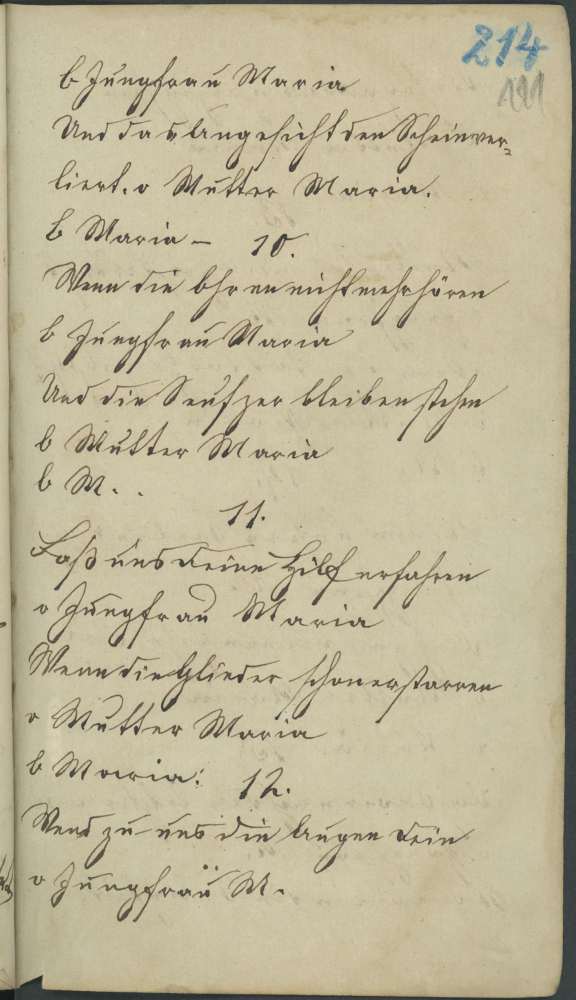 214
111
O Jungfrau Maria
Und das Angesicht den Schein ver=
liert. o Mutter Maria.
O Maria – 10.
Wenn die Ohren nicht mehr hören
O Jungfrau Maria
Und die Seufzer bleiben stehn
O Mutter Maria
O M. .
11.
Laß uns deine Hilf erfahren
o Jungfrau Maria
Wenn die Glieder schon erstarren
o Mutter Maria
O Maria: 12.
Wend zu uns die Augen dein
o Jungfrau M.